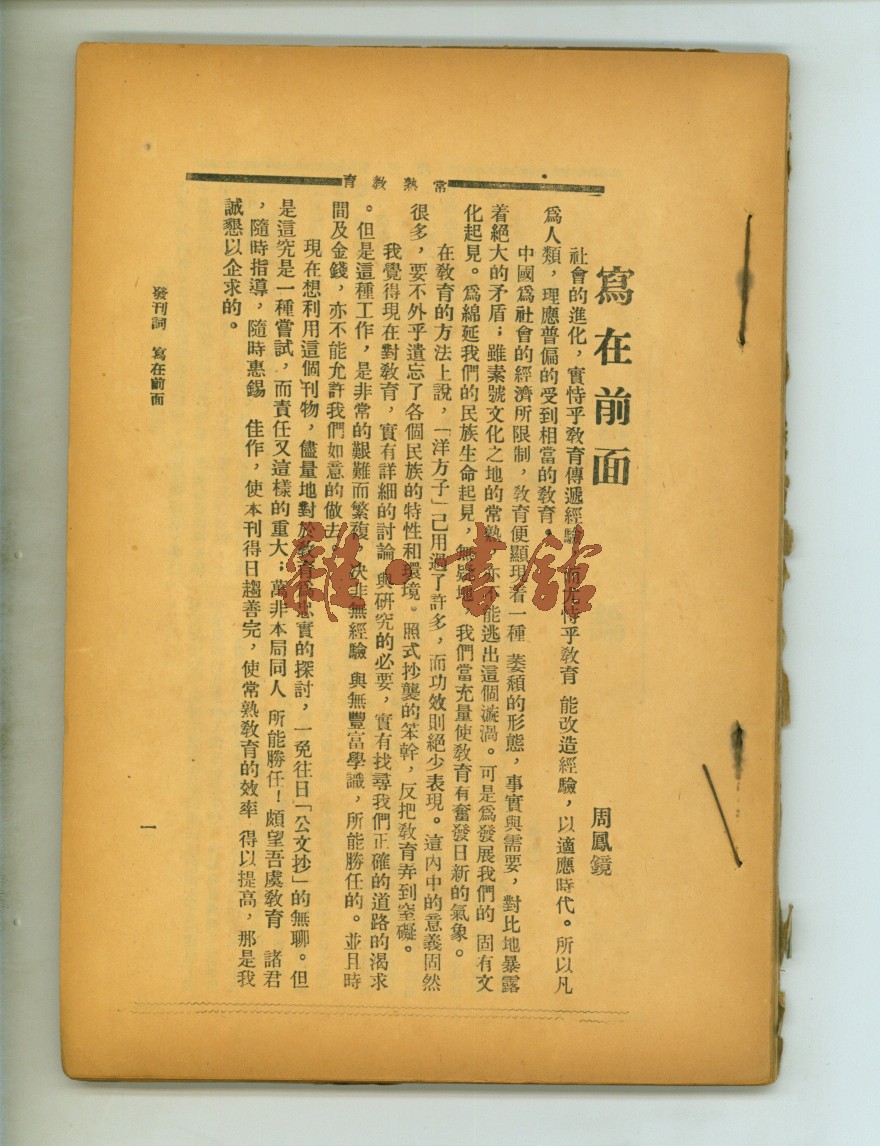 常熟教育
寫在前面
周鳳鏡
社會的進化，實恃乎敎育傳遞經驗 而尤恃乎敎育 能改造經驗，以適應時代。所以凡
爲人類，理應普偏的受到相當的敎育。
中國爲社會的經濟所限制，敎育便顯現着一種 萎頹的形態，事實與需要，對比地暴露
着絕大的矛盾；雖素號文化之地的常熟 亦不能逃出這個漩渦。可是爲發展我們的 固有文
化起見。爲綿延我們的民族生命起見，無疑地 我們當充量使敎育有奮發日新的氣象。
在敎育的方法上說，「洋方子」已用過了許多，而功效則絕少表現。這內中的意義固然
很多，要不外乎遺忘了各個民族的特性和環境。照式抄襲的笨幹，反把敎育弄到窒礙。
我覺得現在對敎育，實有詳細的討論 與研究的必要，實有找尋我們正確的道路的渴求
。但是這種工作，是非常的艱難而繁複，決非無經驗 與無豐富學識，所能勝任的。並且時
間及金錢，亦不能允許我們如意的做去
現在想利用這個刊物，儘量地對於敎育爲忠實的探討，一免往日「公文抄」的無聊。但
是這究是一種嘗試，而責任又這樣的重大；萬非本局同人 所能勝任！頗望吾虞敎育 諸君
，隨時指導，隨時惠錫 佳作，使本刊得日趨善完，使常熟敎育的效率 得以提高，那是我
誠懇以企求的。
發刊詞 寫在前面
一
雜·書館